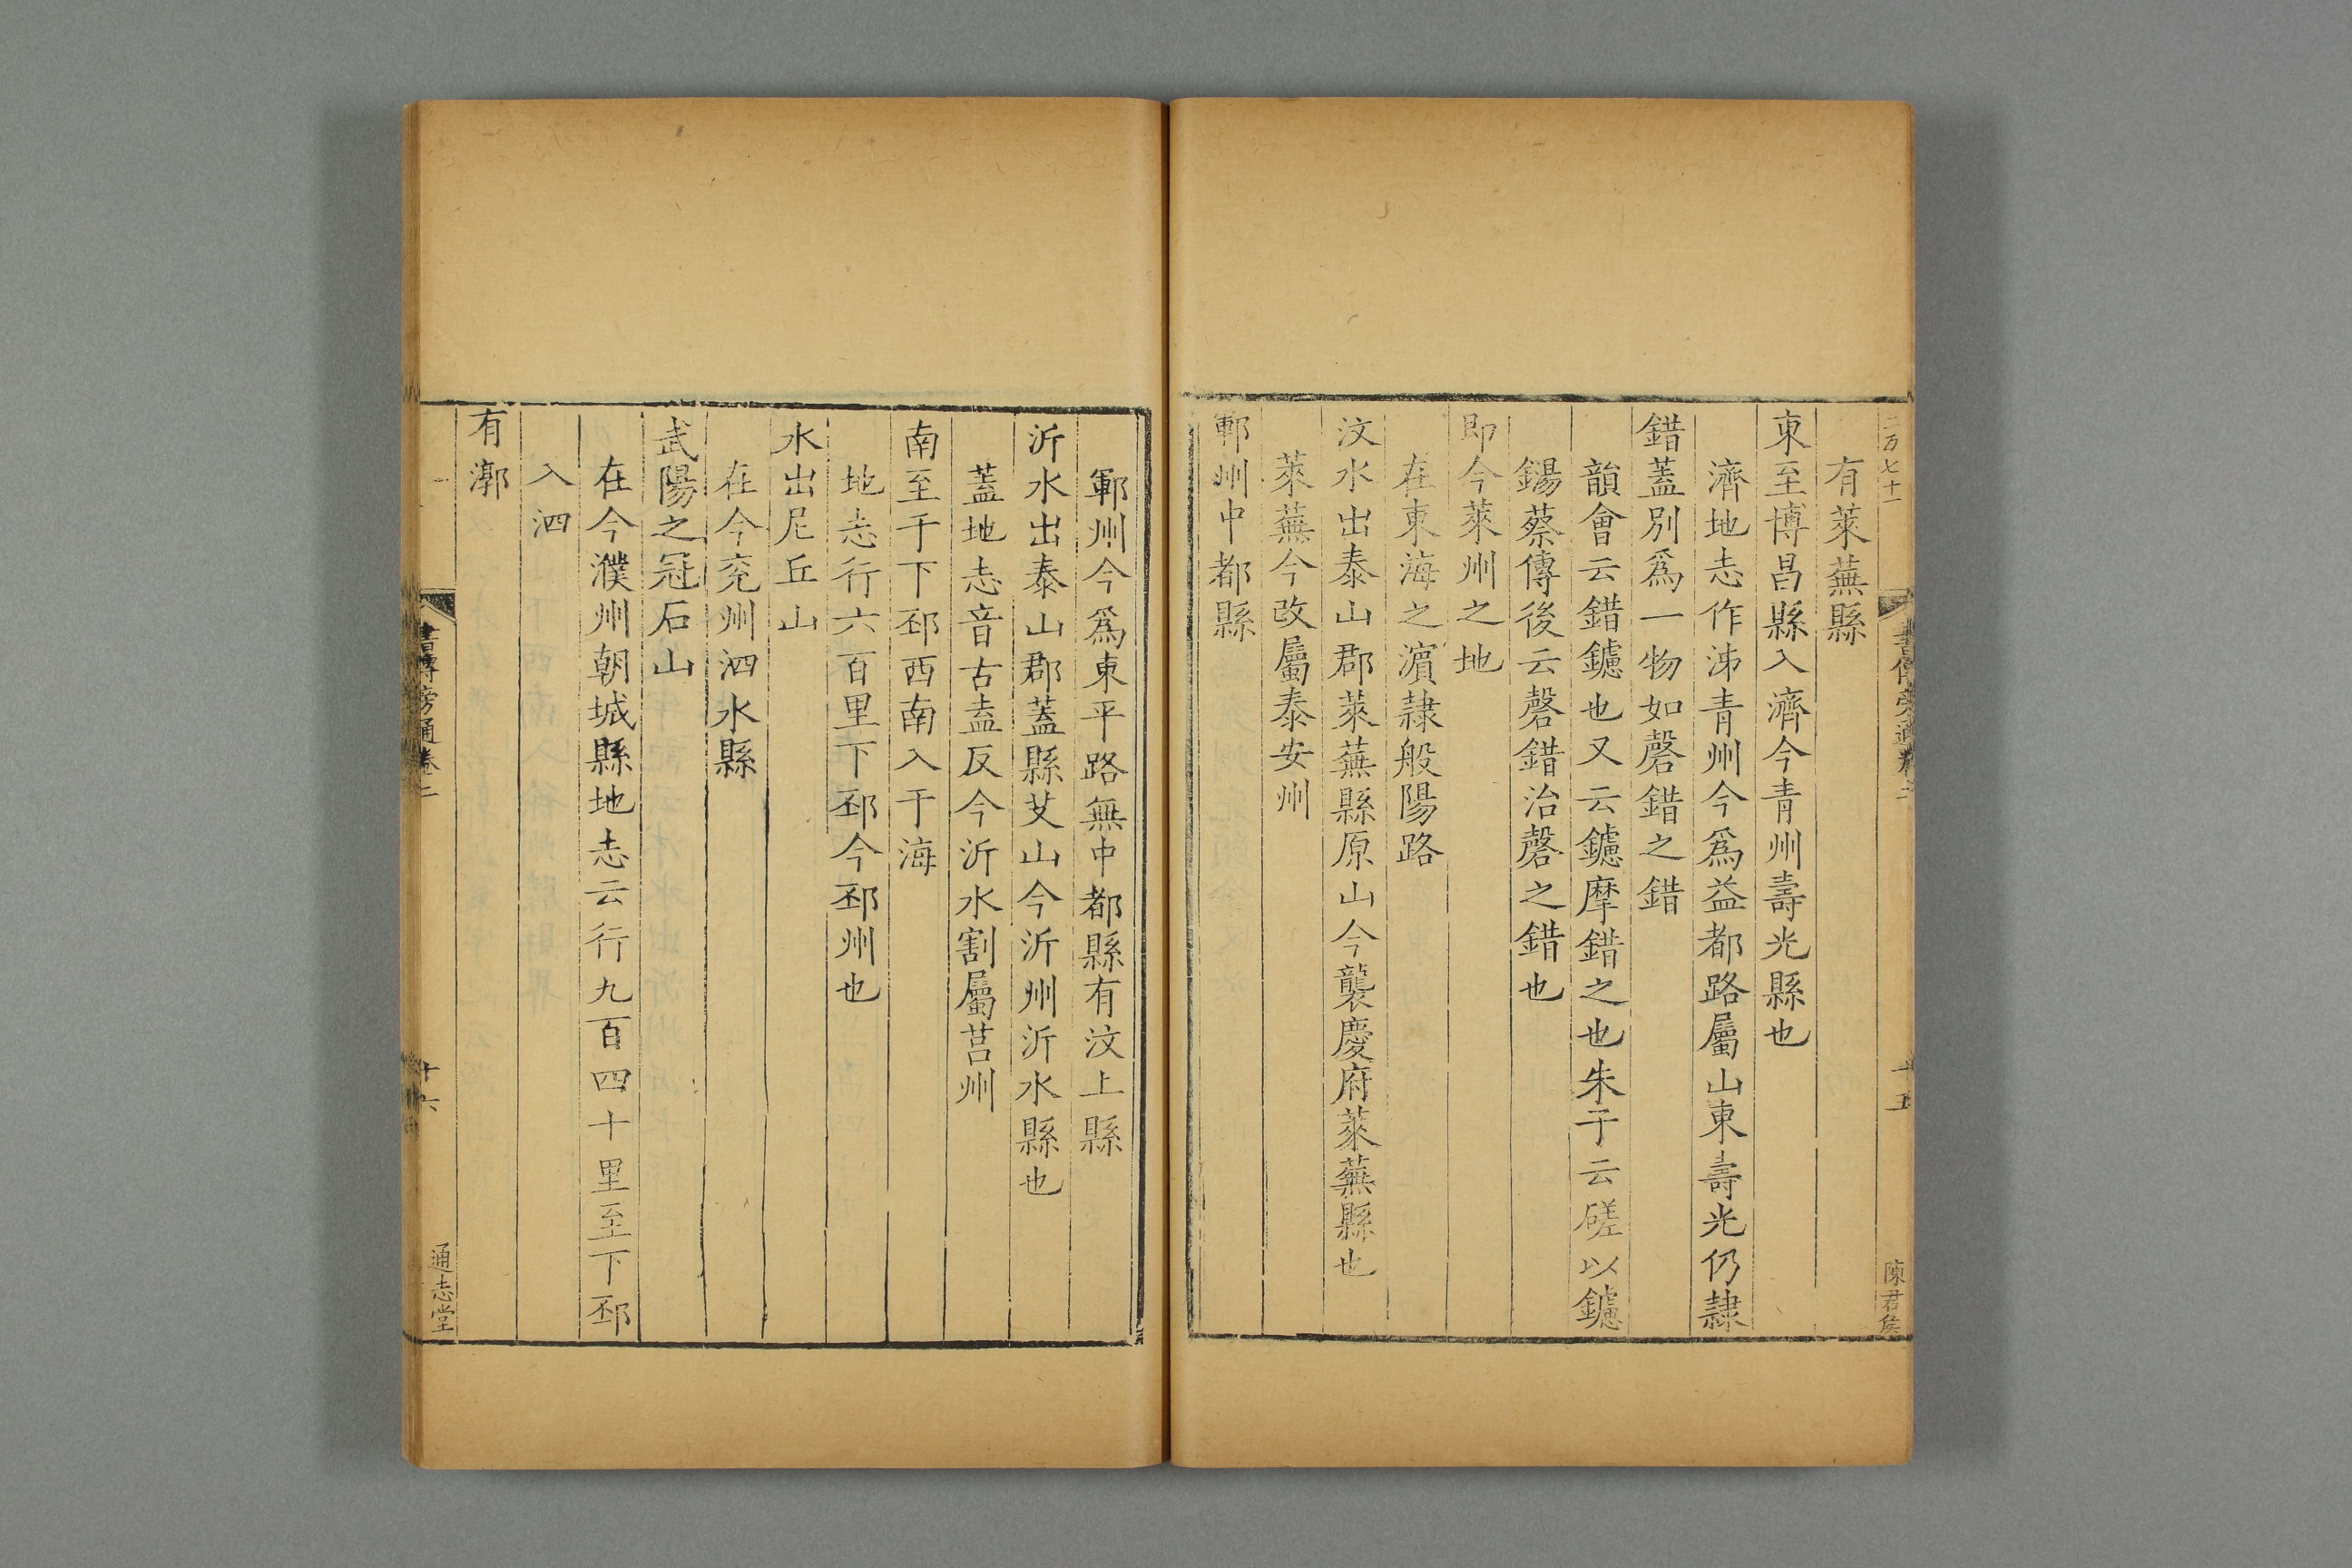 二百七十一
陳君侯
有萊蕪縣
東至博昌縣入濟今青州壽光縣也
濟地志作泲青州今爲益都路屬山東壽光仍隷
錯蓋別爲一物如磬錯之錯
韻會云錯鑢也又云鑢摩錯之也朱子云磋以鑢
鐋蔡傳後云磬錯治磬之錯也
即今萊州之地
在東海之濵隷般陽路
汶水出泰山郡萊蕪縣原山今襲慶府萊蕪縣也
萊蕪今改屬泰安州
鄆州中都縣
鄆州今爲東平路無中都縣有汶上縣
沂水出泰山郡蓋縣艾山今沂州沂水縣也
蓋地志音古盍反今沂水割屬莒州
南至于下邳西南入于海
地志行六百里下邳今邳州也
水出尼丘山
在今兖州泗水縣
武陽之冠石山
在今濮州朝城縣地志云行九百四十里至下邳
入泗
有漷
書傳旁通卷二
十六
通志堂